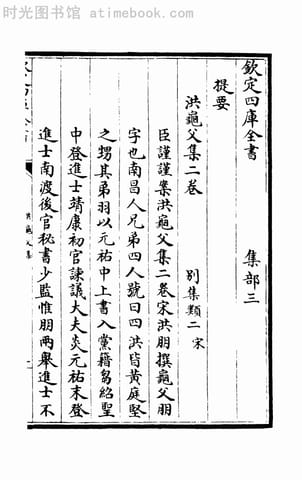 时光图书馆 atimebook.com
欽定四庫全書　集部三
提要
洪龜父集二卷　别集類二 宋
臣謹謹案洪龜父集二卷宋洪朋撰龜父朋
字也南昌人兄弟四人號曰四洪皆黄庭堅
之甥其弟羽以元祐中上書入黨籍芻紹聖
中登進士靖康初官諫議大夫炎元祐末登
進士南渡後官秘書少監惟朋兩舉進士不
洪龜父集